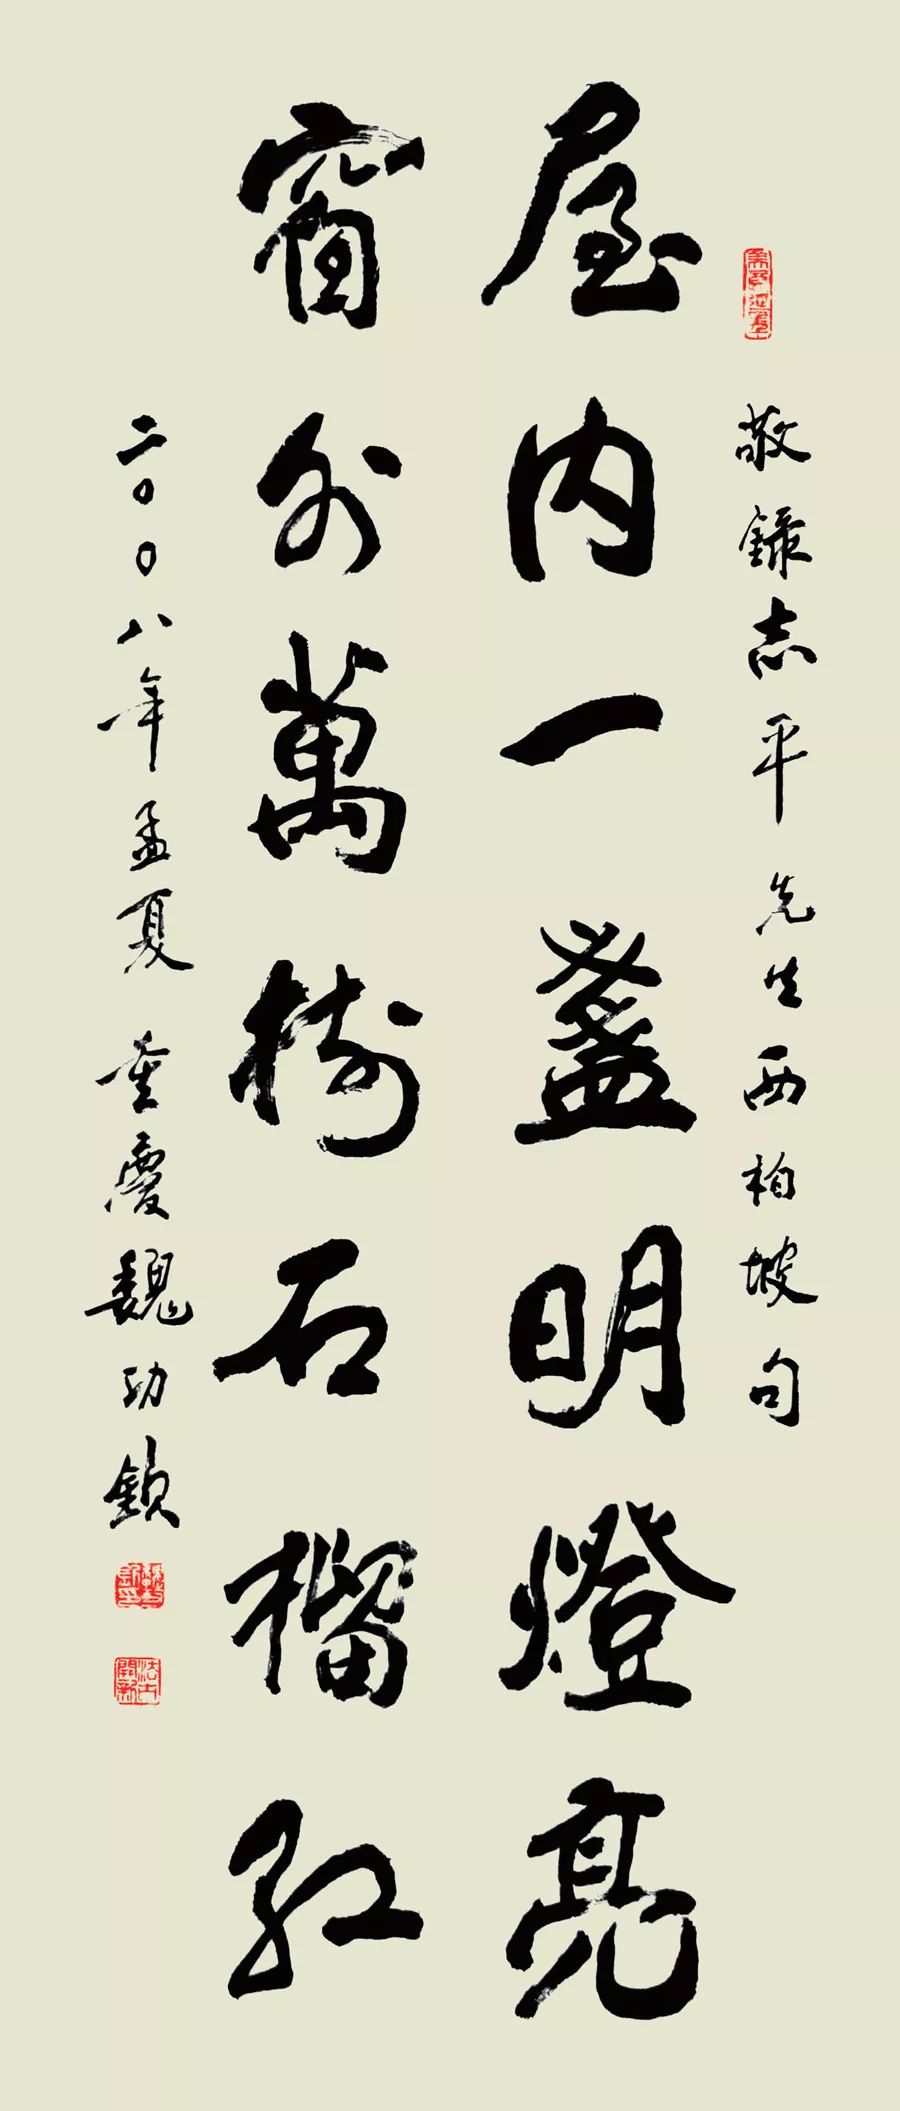 敬錄志平先生西柏坡句
屋内一盞明燈亮
窗外萬樹石榴紅
二〇〇八年孟夏重慶魏功鎖